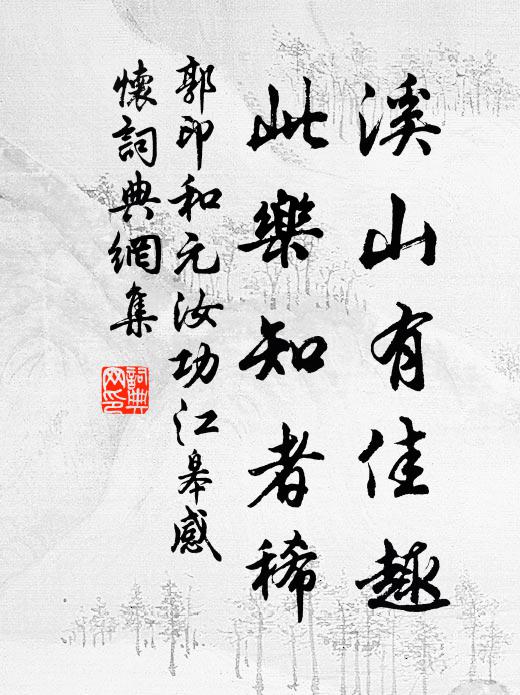 溪山有佳趣
此樂知者稀
郭印和元汝功江皋感
懷詞典網集
詞典
网印